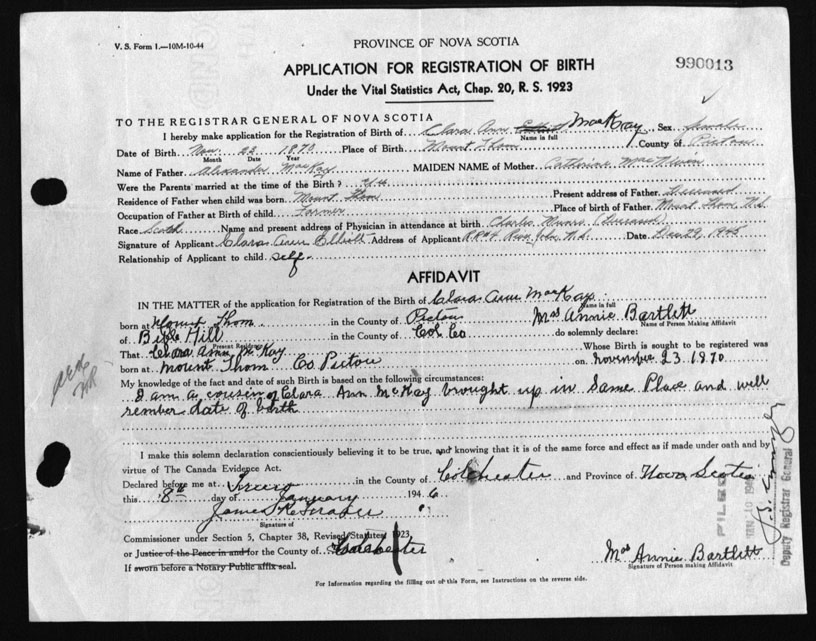 V. S. Form 1.—10M-10-44
PROVINCE OF NOVA SCOTIA
990013
APPLICATION FOR REGISTRATION OF BIRTH
Under the Vital Statistics Act, Chap. 20, R. S. 1923
TO THE REGISTRAR GENERAL OF NOVA SCOTIA
I hereby make application for the Registration of Birth of Clara Ann MacKay, Sex female
Name in full
Date of Birth Nov. 22 1870 Place of Birth Mount Thom County of Pictou
Month Date Year
Name of Father Alexander MacKay MAIDEN NAME of Mother Catherine
Were the Parents married at the time of the Birth? Yes
Residence of Father when child was born Mount Thom Present address of Father Deceased
Occupation of Father at Birth of child Farmer Place of birth of Father Mount Thom, N.S.
Race Scotch Name and present address of Physician in attendance at birth Charles Munro (Deceased)
Signature of Applicant Clara Ann Elliott Address of Applicant N.S. Date Dec 29, 1945
Relationship of Applicant to child self.
AFFIDAVIT
IN THE MATTER of the application for Registration of the Birth of Clara Ann MacKay
Name in full
born at Mount Thom in the County of Pictou Mrs Annie Bartlett
Name of Person Making Affidavit
of Bible Hill in the County of Col Co do solemnly declare:
Present Residence
That Clara Ann McKay Whose Birth is sought to be registered was
born at Mount Thom Co Pictou on November 23 1870
My knowledge of the fact and date of such Birth is based on the following circumstances:
I am a cousin of Clara Ann McKay brought up in Same Place and well
rember date of birth
I make this solemn declaration conscientiously believing it to be true, and knowing that it is of the same force and effect as if made under oath and by
virtue of The Canada Evidence Act.
Declared before me at Truro in the County of Colchester and Province of Nova Scotia
this 8th day of January 1946
James
Signature of
Commissioner under Section 5, Chapter 38, Revised Statutes 1923,
or Justice of the Peace in and for the County of Colchester
If sworn before a Notary Public affix seal.
Mrs Annie Bartlett
Signature of Person making Affidavit
For Information regarding the filling out of this Form, see Instructions on the reverse side.
FILED
JAN 10 1946
Deputy Registrar General